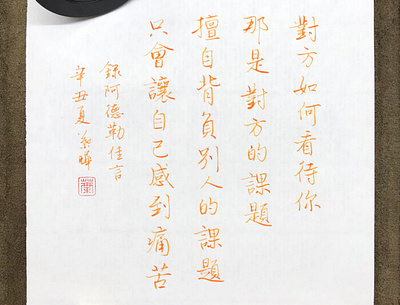 對方如何看待你
那是對方的課題
擅自背負別人的課題
只會讓自己感到痛苦
錄阿德勒佳言
辛丑夏